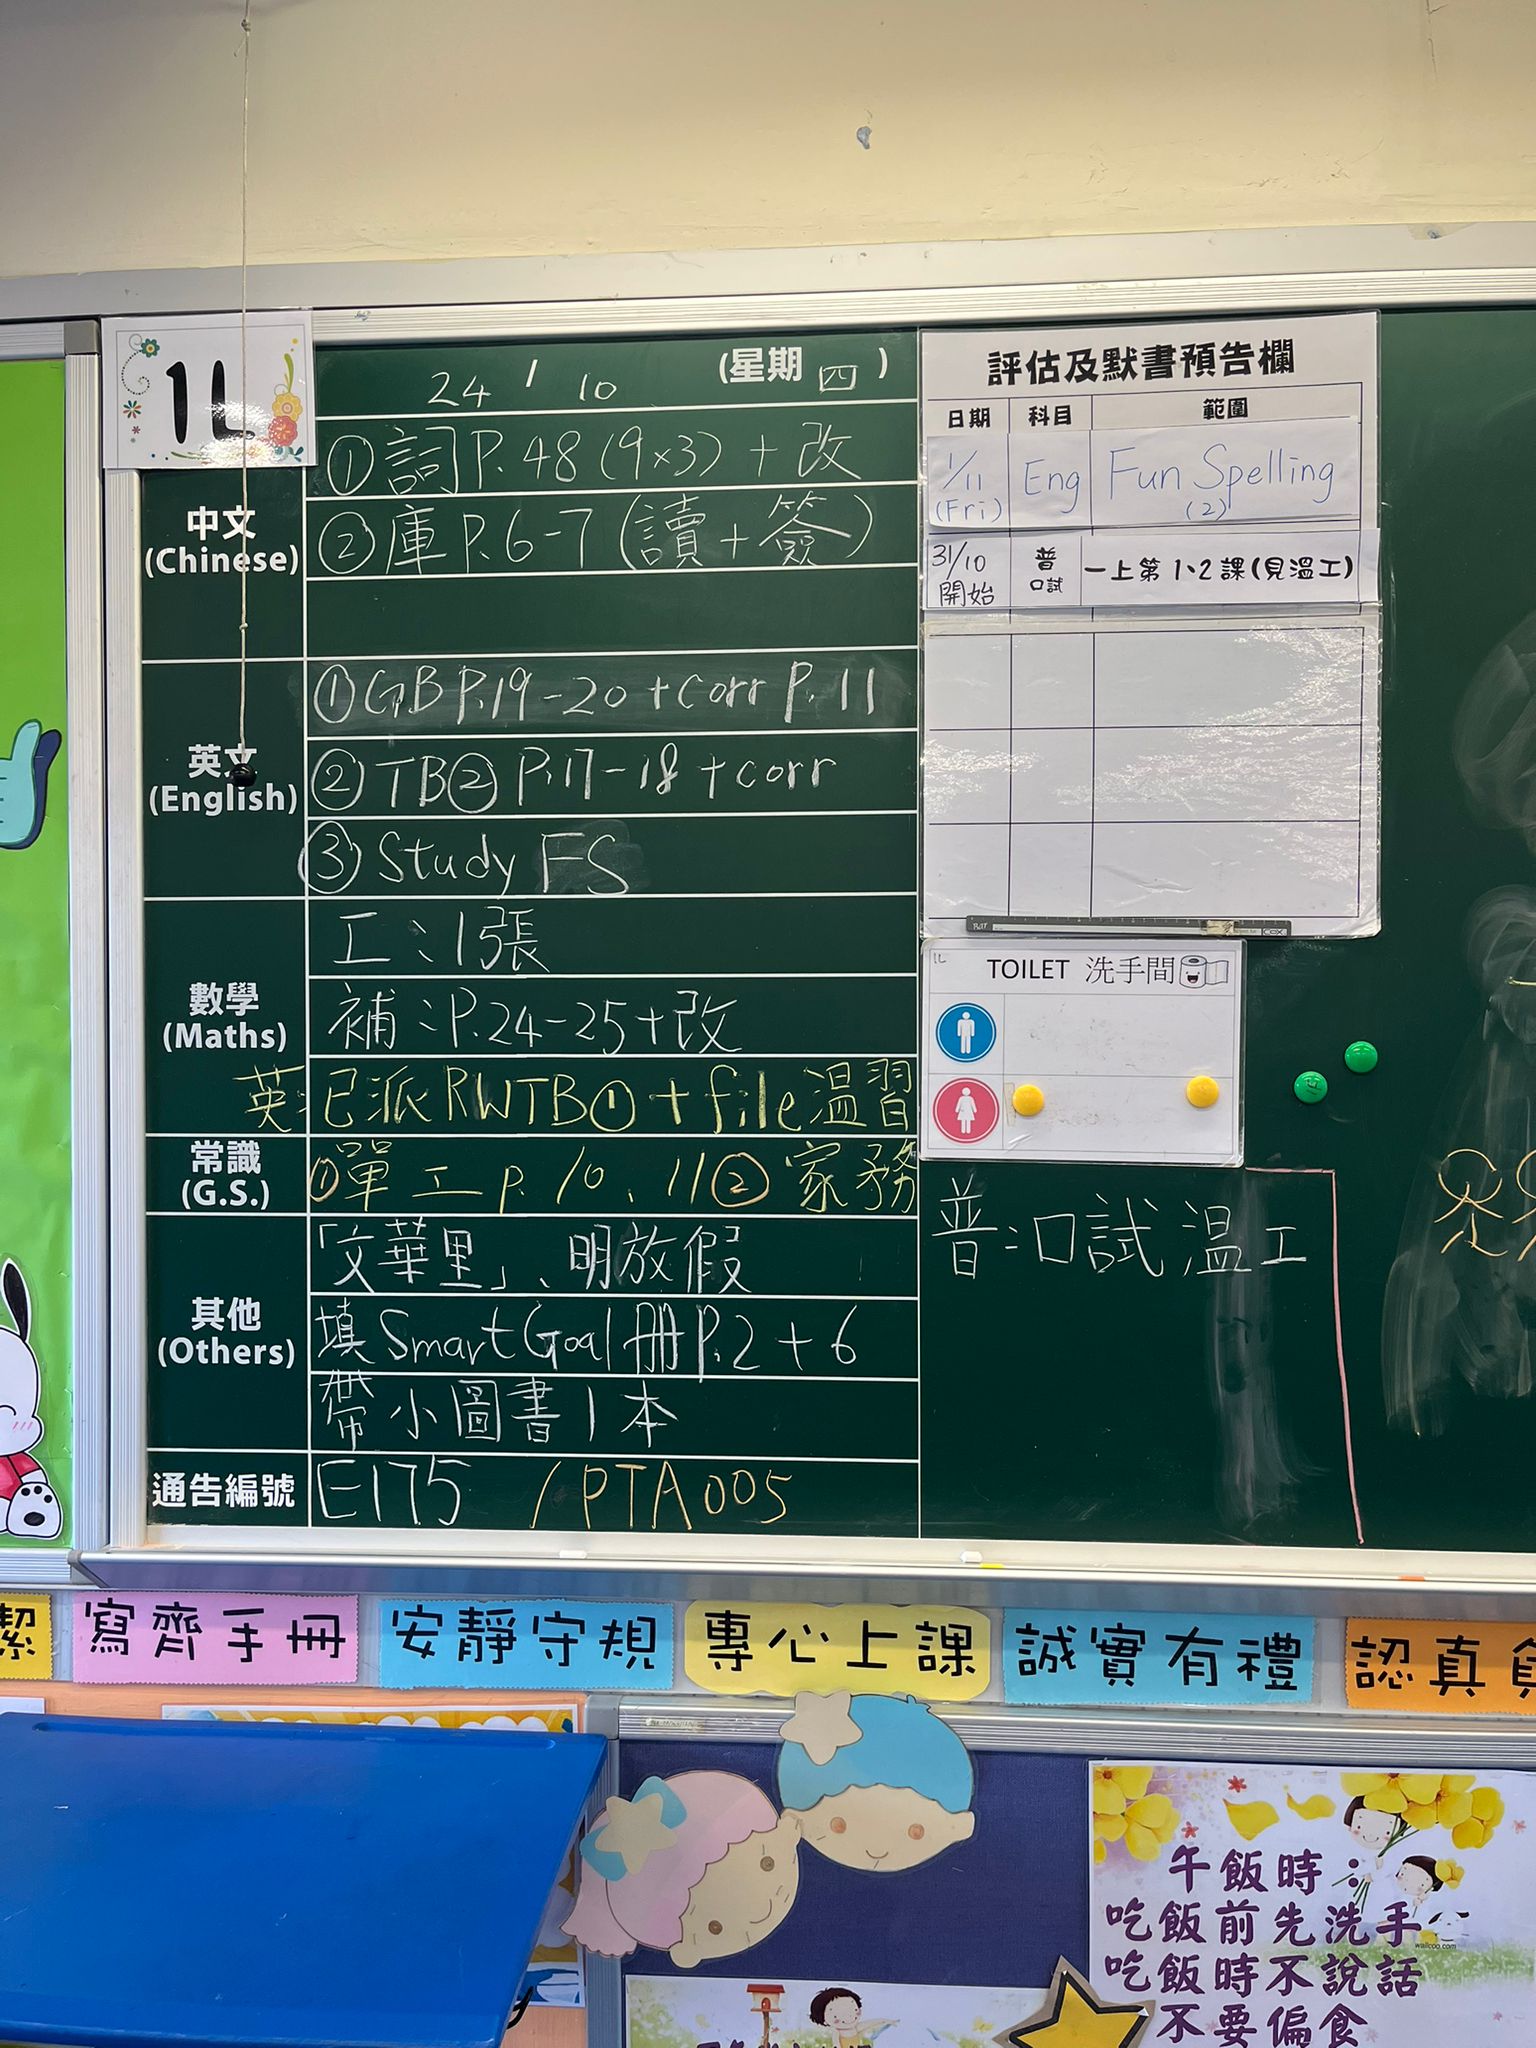 1L
24 / 10 (星期 四 )
中文
(Chinese)
① 詞 P.48 (9×3) + 改
② 庫 P.6-7 (讀 + 簽)
英文
(English)
① GB P.19-20 + corr P.11
② TB② P.17-18 + corr
③ Study FS
數學
(Maths)
工：1張
補：P.24-25 + 改
英：已派 RWTB① + file 溫習
常識
(G.S.)
① 單工 p.10、11 ② 家務
其他
(Others)
「文華里」、明放假
填 Smart Goal 冊 P.2 + 6
帶小圖書1本
通告編號
E175 / PTA005
評估及默書預告欄
日期 科目 範圍
1/11 (Fri) Eng Fun Spelling (2)
31/10 開始 普 口試 一上第1、2課(見溫工)
1L
TOILET 洗手間
普：口試溫工
潔
寫齊手冊
安靜守規
專心上課
誠實有禮
認真負
午飯時：
吃飯前先洗手
吃飯時不說話
不要偏食
wallcoo.com